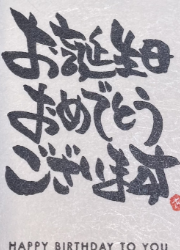 お誕生日
おめでとう
ございます
HAPPY BIRTHDAY TO YOU